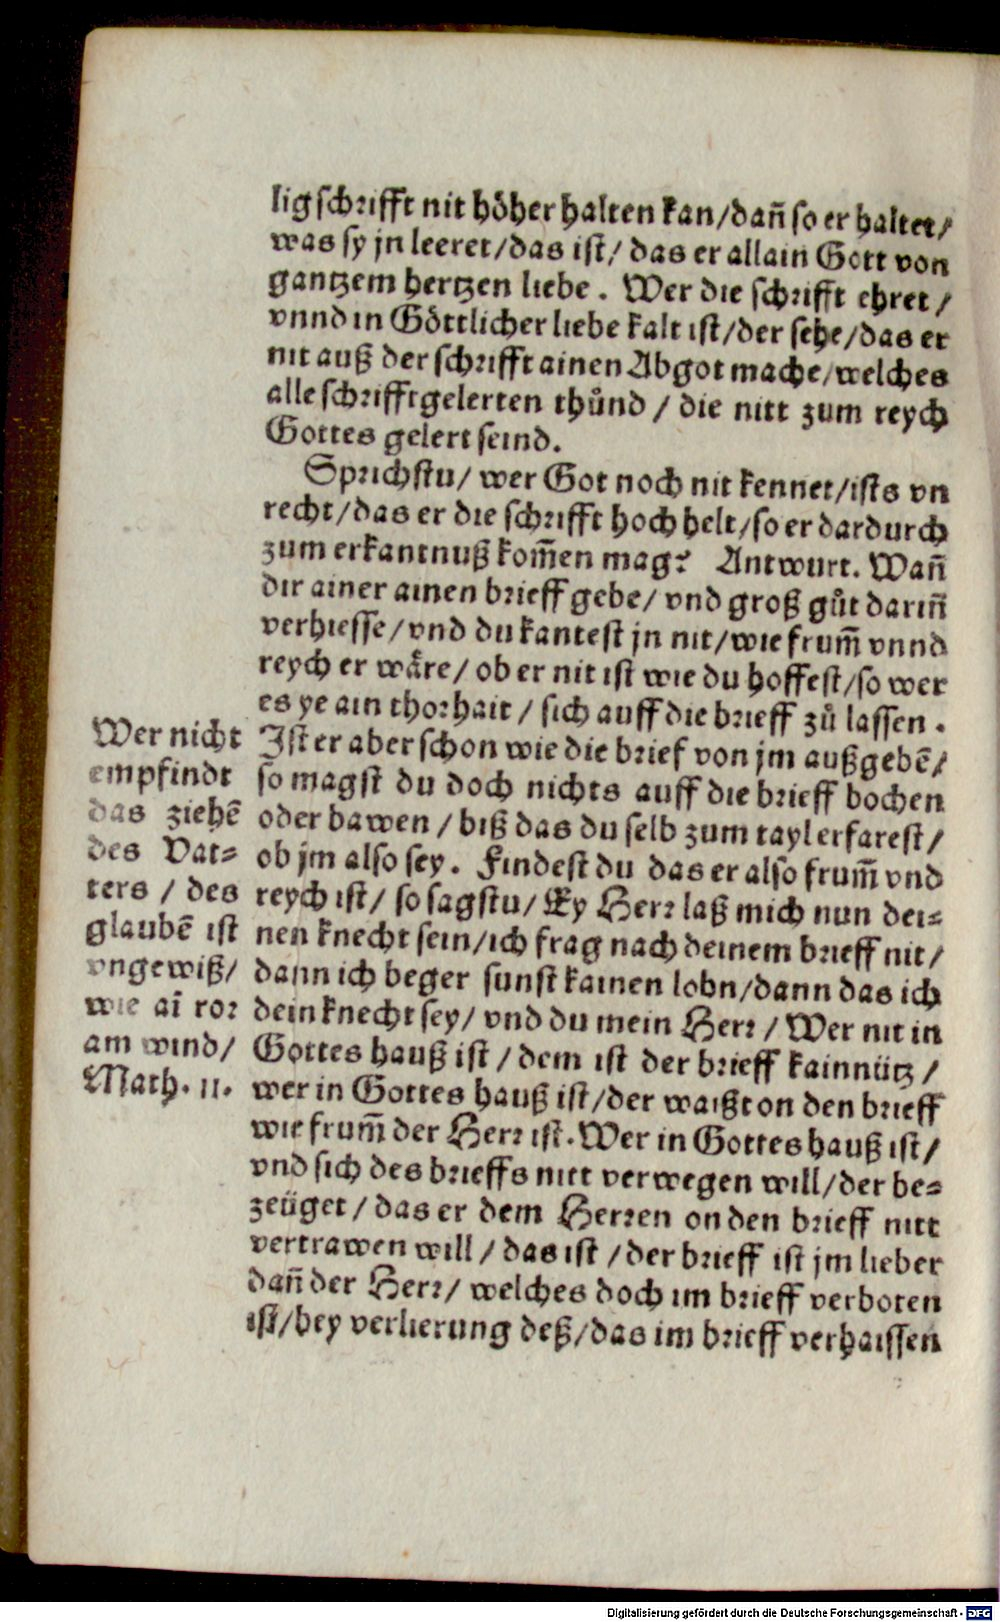 lig schrifft nit höher halten kan / dañ so er haltet /
was sy jn leeret / das ist / das er allain Gott von
gantzem hertzen liebe . Wer die schrifft ehret /
vnnd in Göttlicher liebe kalt ist / der sehe / das er
nit auß der schrifft ainen Abgot mache / welches
alle schrifftgelerten thůnd / die nitt zum reych
Gottes gelert seind .
Sprichstu / wer Got noch nit kennet / ists vn
recht / das er die schrifft hoch helt / so er dardurch
zum erkantnuß kom̃en mag? Antwurt. Wañ
dir ainer ainen brieff gebe / vnd groß gůt dariñ
verhiesse / vnd du kantest jn nit / wie frum̃ vnnd
reych er wåre / ob er nit ist wie du hoffest / so wer
es ye ain thorhait / sich auff die brieff zů lassen .
Ist er aber schon wie die brief von jm außgebē /
so magst du doch nichts auff die brieff bochen
oder bawen / biß das du selb zum tayl erfarest /
ob jm also sey . Findest du das er also frum̃ vnd
reych ist / so sagstu / Ey Herr laß mich nun dei=
nen knecht sein / ich frag nach deinem brieff nit /
dann ich beger sunst kainen lohn / dann das ich
dein knecht sey / vnd du mein Herr / Wer nit in
Gottes hauß ist / dem ist der brieff kainnütz /
wer in Gottes hauß ist / der waißt on den brieff
wie frum̃ der Herr ist . Wer in Gottes hauß ist /
vnd sich des brieffs nitt verwegen will / der be=
zeüget / das er dem Herren on den brieff nitt
vertrawen will / das ist / der brieff ist jm lieber
dañ der Herr / welches doch im brieff verboten
ist / bey verlierung deß / das im brieff verhaissen
Wer nicht
empfindt
das ziehē
des Vat=
ters / des
glaubē ist
vngewiß /
wie aī ror
am wind /
Math. 11.
Digitalisierung gefördert durch die Deutsche Forschungsgemeinschaft - DFG